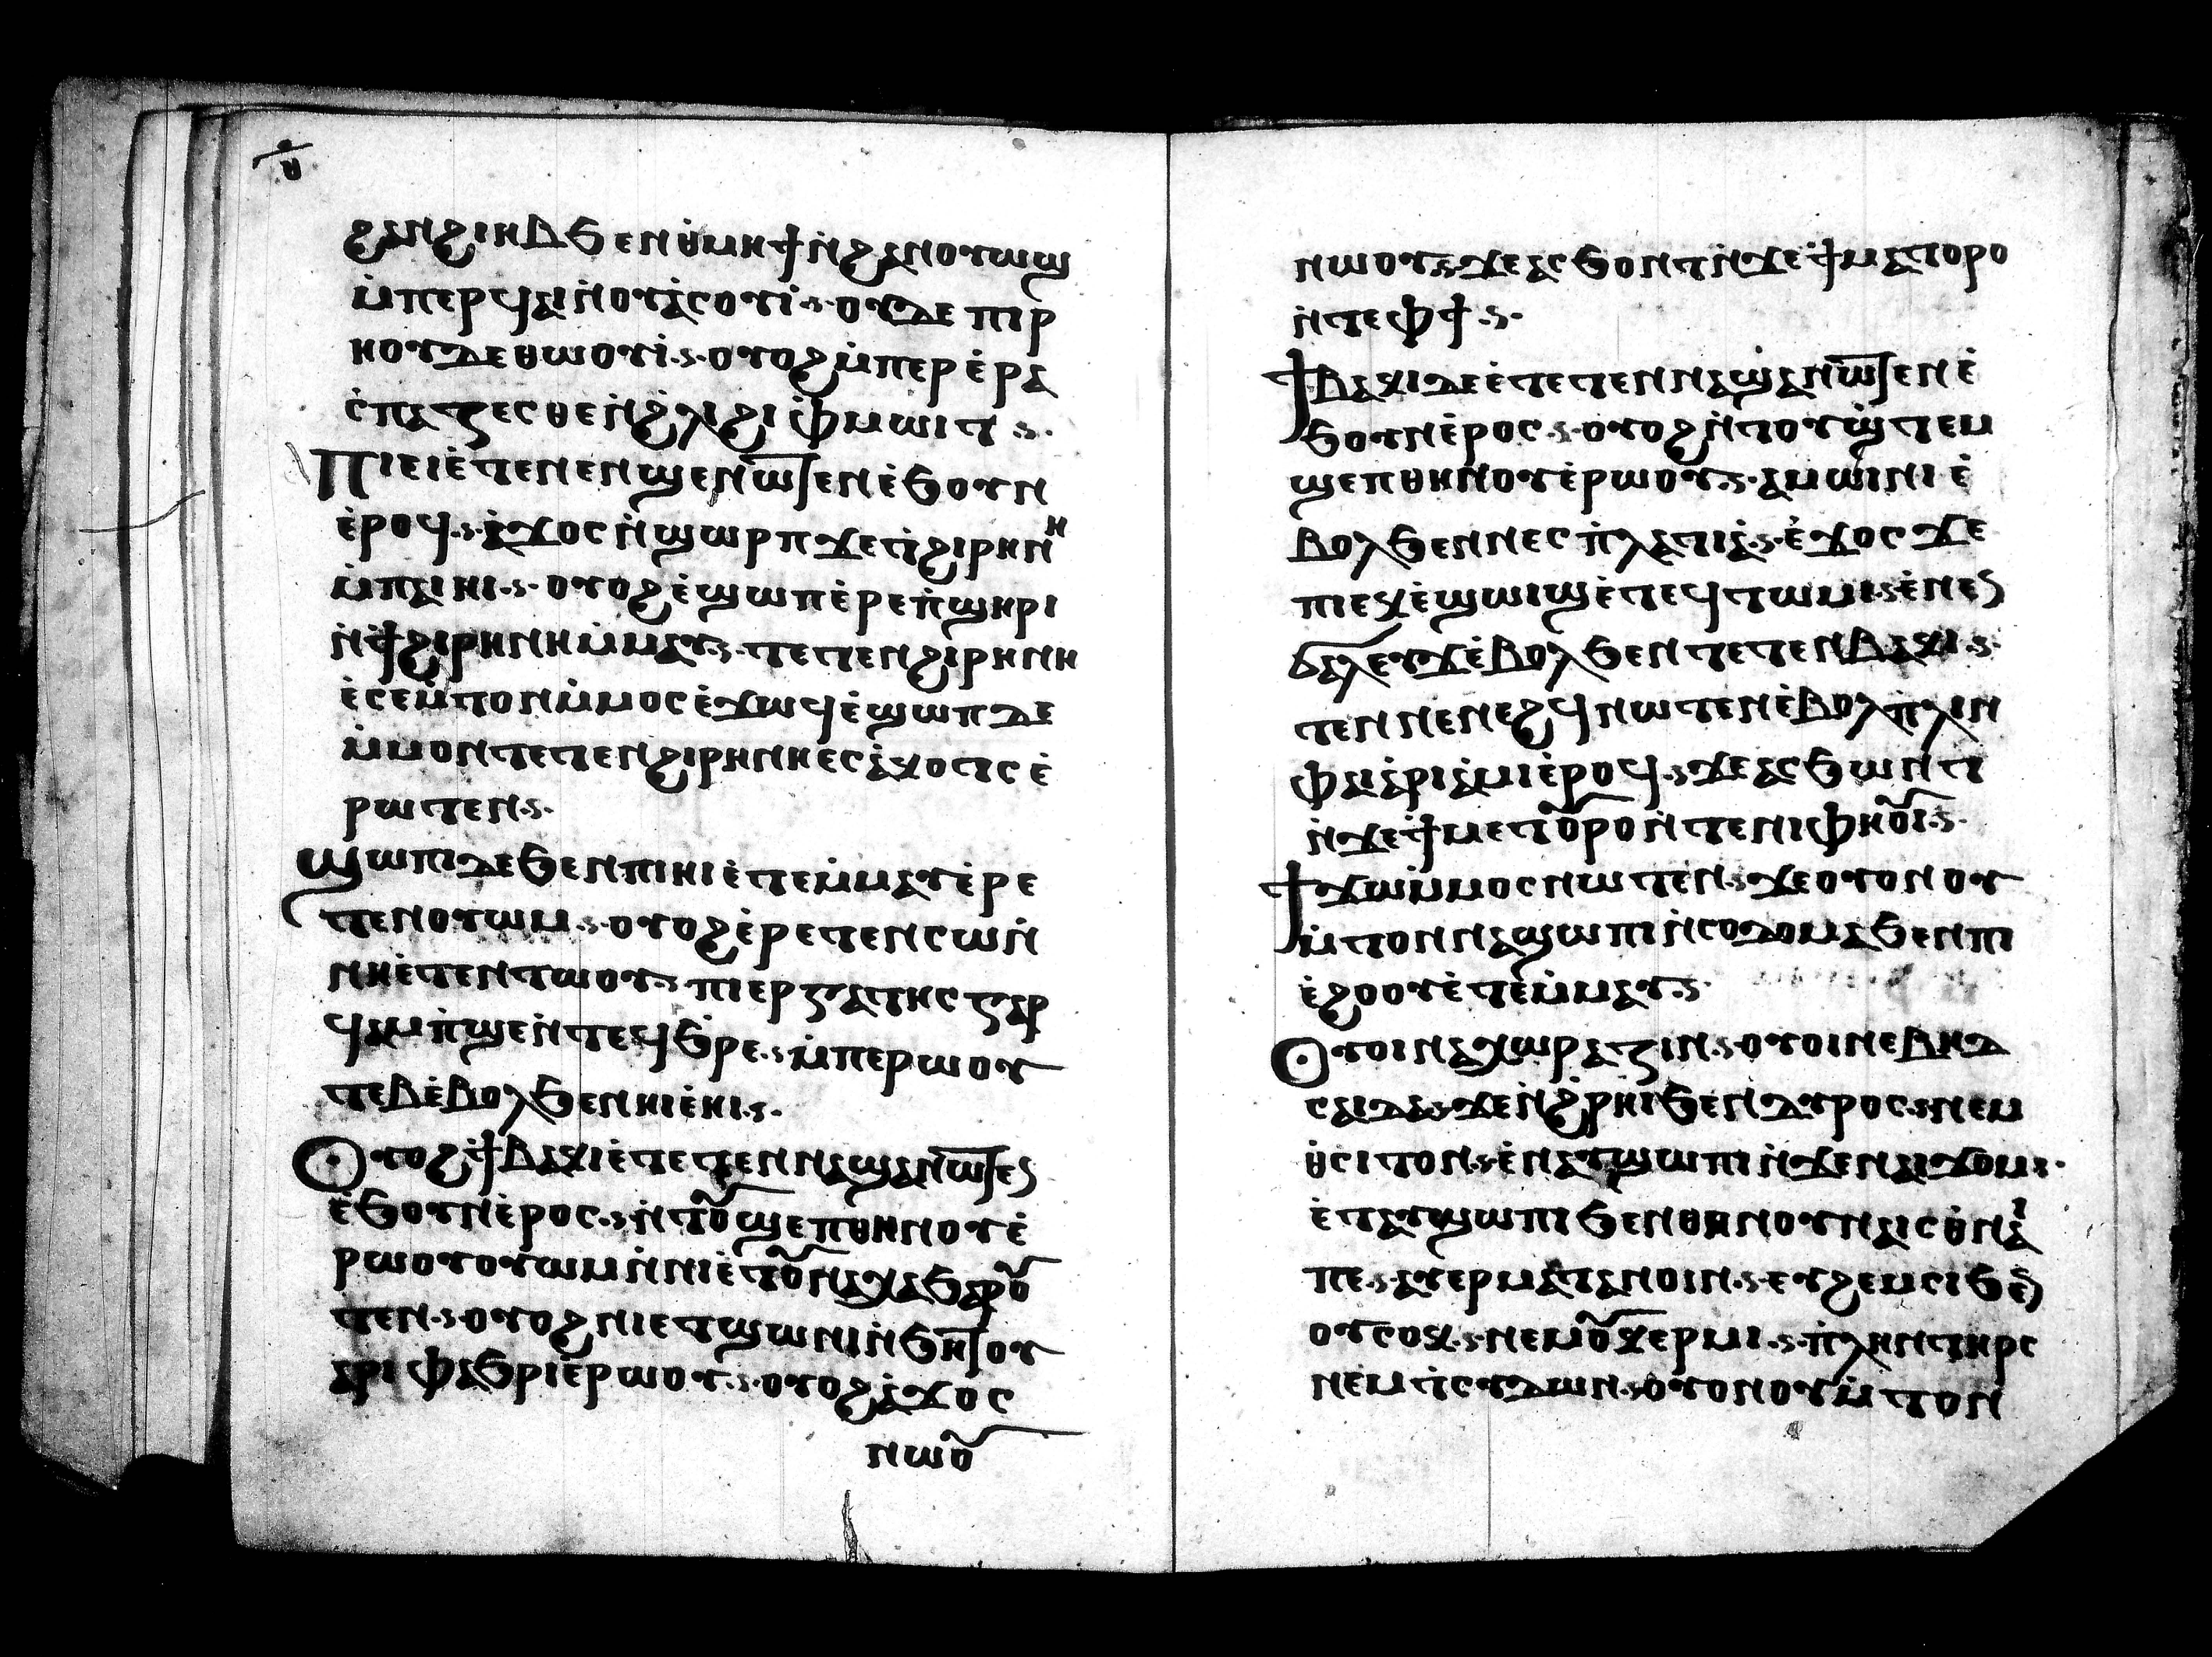 ⲑ
ϩⲁⲛϩⲓⲏⲃ ϧⲉⲛ ⲑⲙⲏϯ ⲛ̇ϩⲁⲛⲟⲩⲱⲛϣ
ⲙ̇ⲡⲉⲣϥⲁⲓ ⲛ̇ⲟⲩⲁ̇ⲥⲟⲩⲓ̇ · ⲟⲩⲇⲉ ⲡⲓⲣ
ⲏⲟⲩⲇⲉ ⲑⲱⲟⲩⲓ̇ · ⲟⲩⲟϩ ⲙ̇ⲡⲉⲣⲉ̇ⲣⲁ
ⲥ̇ⲡⲁⲍⲉⲥⲑⲉ ⲛ̇ϩ̇ⲗⲓ ϩⲓ ⲫ̇ⲙⲱⲓⲧ ·
ⲡⲓⲉⲓ ⲉ̇ⲧⲉⲛⲉⲛϣⲉⲛⲱⲧⲉⲛ ⲉ̇ϧⲟⲩⲛ
ⲉ̇ⲣⲟϥ · ⲁ̇ϫⲟⲥ ⲛ̇ϣⲱⲣⲡ ϫⲉ ⲧ̇ϩⲓⲣⲏⲛⲏ
ⲙ̇ⲡⲁⲓⲏⲓ · ⲟⲩⲟϩ ⲉ̇ϣⲱⲡ ⲉ̇ⲣⲉ ⲡ̇ϣⲏⲣⲓ
ⲛ̇ϯϩⲓⲣⲏⲛⲏ ⲙ̇ⲙⲁⲩ · ⲧⲉⲧⲉⲛϩⲓⲣⲏⲛⲏ
ⲉ̇ⲥⲉⲙ̇ⲧⲟⲛ ⲙ̇ⲙⲟⲥ ⲉ̇ϫⲱϥ ⲉ̇ϣⲱⲡ ⲇⲉ
ⲙ̇ⲙⲟⲛ ⲧⲉⲧⲉⲛϩⲓⲣⲏⲛⲏ ⲉⲥⲁ̇ⲕⲟⲧⲥ ⲉ̇
ⲣⲱⲧⲉⲛ ·
ϣⲱⲡⲓ ⲇⲉ ϧⲉⲛ ⲡⲓⲏⲓ ⲉ̇ⲧⲉⲙ̇ⲙⲁⲩ ⲉ̇ⲣⲉ
ⲧⲉⲛⲟⲩⲱⲙ · ⲟⲩⲟϩ ⲉ̇ⲣⲉⲧⲉⲛⲥⲱ ⲛ̇
ⲛⲏ ⲉ̇ⲧⲉⲛⲧⲱⲟⲩ · ⲡⲓⲉⲣⲅⲁⲧⲏⲥ ⲅⲁⲣ
ϥⲁⲙ̇ⲡϣⲉ ⲛ̇ⲧⲉϥϧⲣⲉ · ⲙ̇ⲡⲉⲣⲱⲟⲩ
ⲧⲉⲃ ⲉ̇ⲃⲟⲗ ϧⲉⲛ ⲏⲓ ⲉ̇ⲏⲓ ·
ⲟⲩⲟϩ ϯⲃⲁⲕⲓ ⲉ̇ⲧⲉⲧⲉⲛⲛⲁϣⲁⲛⲱⲧⲉⲛ
ⲉ̇ϧⲟⲩⲛ ⲉ̇ⲣⲟⲥ · ⲛ̇ⲧⲟⲩϣⲉⲡ ⲑⲏⲛⲟⲩ ⲉ̇
ⲣⲱⲟⲩ ⲟⲩⲱⲙ ⲛ̇ⲛⲓ ⲉ̇ⲧⲟⲩⲛⲁⲭⲁϧⲁⲣⲟ
ⲧⲉⲛ · ⲟⲩⲟϩ ⲛⲓⲉⲧϣⲱⲛⲓ ⲛ̇ϧⲏⲧⲟⲩ
ⲁⲣⲓ ⲫⲁϧⲣⲓ ⲉ̇ⲣⲱⲟⲩ · ⲟⲩⲟϩ ⲁ̇ϫⲟⲥ
ⲛⲱⲟⲩ
ⲛⲱⲟⲩ · ϫⲉ ⲁⲥϧⲟⲛⲧ ⲛ̇ϫⲉ ϯⲙⲁⲧⲟⲣⲟ
ⲛ̇ⲧⲉ ⲫϯ ·
ϯⲃⲁⲕⲓ ⲇⲉ ⲉ̇ⲧⲉⲧⲉⲛⲛⲁϣⲁⲛⲱⲧⲉⲛ ⲉ̇
ϧⲟⲩⲛ ⲉ̇ⲣⲟⲥ · ⲟⲩⲟϩ ⲛ̇ⲧⲟⲩϣ̇ⲧⲉⲙ
ϣⲉⲡ ⲑⲏⲛⲟⲩ ⲉ̇ⲣⲱⲟⲩ · ⲁⲙⲱⲓⲛⲓ ⲉ̇
ⲃⲟⲗ ϧⲉⲛ ⲛⲉⲥⲡ̇ⲗⲁⲧⲓⲁ̇ · ⲉ̇ϫⲟⲥ ϫⲉ
ⲡⲓⲉⲕⲉ̇ϣⲱⲓϣ ⲉ̇ⲧⲉϥⲧⲱⲙⲓ · ⲉ̇ⲛⲉⲛ
ϭⲁⲗⲉⲩϫ ⲉ̇ⲃⲟⲗ ϧⲉⲛ ⲧⲉⲧⲉⲛⲃⲁⲕⲓ ·
ⲧⲉⲛⲛⲉⲛⲉϩϥ ⲛⲱⲧⲉⲛ ⲉ̇ⲃⲟⲗ ⲡ̇ⲗⲓⲛ
ⲫⲁⲓ ⲁ̇ⲣⲓⲁ̇ⲙⲓ ⲉ̇ⲣⲟϥ · ϫⲉ ⲁⲥϧⲱⲛⲧ
ⲛ̇ϫⲉ ϯⲙⲉⲧⲟⲩⲣⲟ ⲛ̇ⲧⲉ ⲛⲓⲫⲏⲟⲩⲓ ·
ϯϫⲱ ⲙ̇ⲙⲟⲥ ⲛⲱⲧⲉⲛ · ϫⲉ ⲟⲩⲟⲛ ⲟⲩ
ⲙ̇ⲧⲟⲛ ⲛⲁϣⲱⲡⲓ ⲛ̇ⲥⲟⲇⲟⲙⲁ ϧⲉⲛ ⲡⲓ
ⲉ̇ϩⲟⲟⲩ ⲉ̇ⲧⲉⲙ̇ⲙⲁⲩ ·
ⲟⲩⲟⲓ ⲛⲁ ⲭⲱⲣⲁⲍⲓⲛ · ⲟⲩⲟⲓ ⲛⲉ ⲃⲏⲇ
ⲥⲁⲓⲇⲁ · ϫⲉ ⲛ̇ϩ̇ⲣⲏⲓ ϧⲉⲛ ⲇⲩⲣⲟⲥ · ⲛⲉⲙ
ⲑⲥⲓⲧⲟⲛ · ⲉ̇ⲛⲁⲩϣⲱⲡⲓ ⲛ̇ϫⲉ ⲛⲁⲓϫⲟⲙⲓ ·
ⲉ̇ⲧⲁⲩϣⲱⲡⲓ ϧⲉⲛ ⲑⲏⲛⲟⲩ ⲛⲁⲓⲥ ⲑⲛⲁ
ⲡⲉ · ⲁⲩⲉⲣⲙⲁⲧⲁⲛⲟⲓⲛ · ⲉⲩϩⲉⲙⲥⲓ ϧⲉⲛ
ⲟⲩⲥⲟⲕ · ⲛⲉⲙ ⲟⲩⲕⲉⲣⲙⲓ · ⲡ̇ⲗⲏⲛ ⲧⲏⲣⲥ
ⲛⲉⲙ ⲧ̇ⲥⲩⲇⲱⲛ · ⲟⲩⲟⲛ ⲟⲩⲙ̇ⲧⲟⲛ